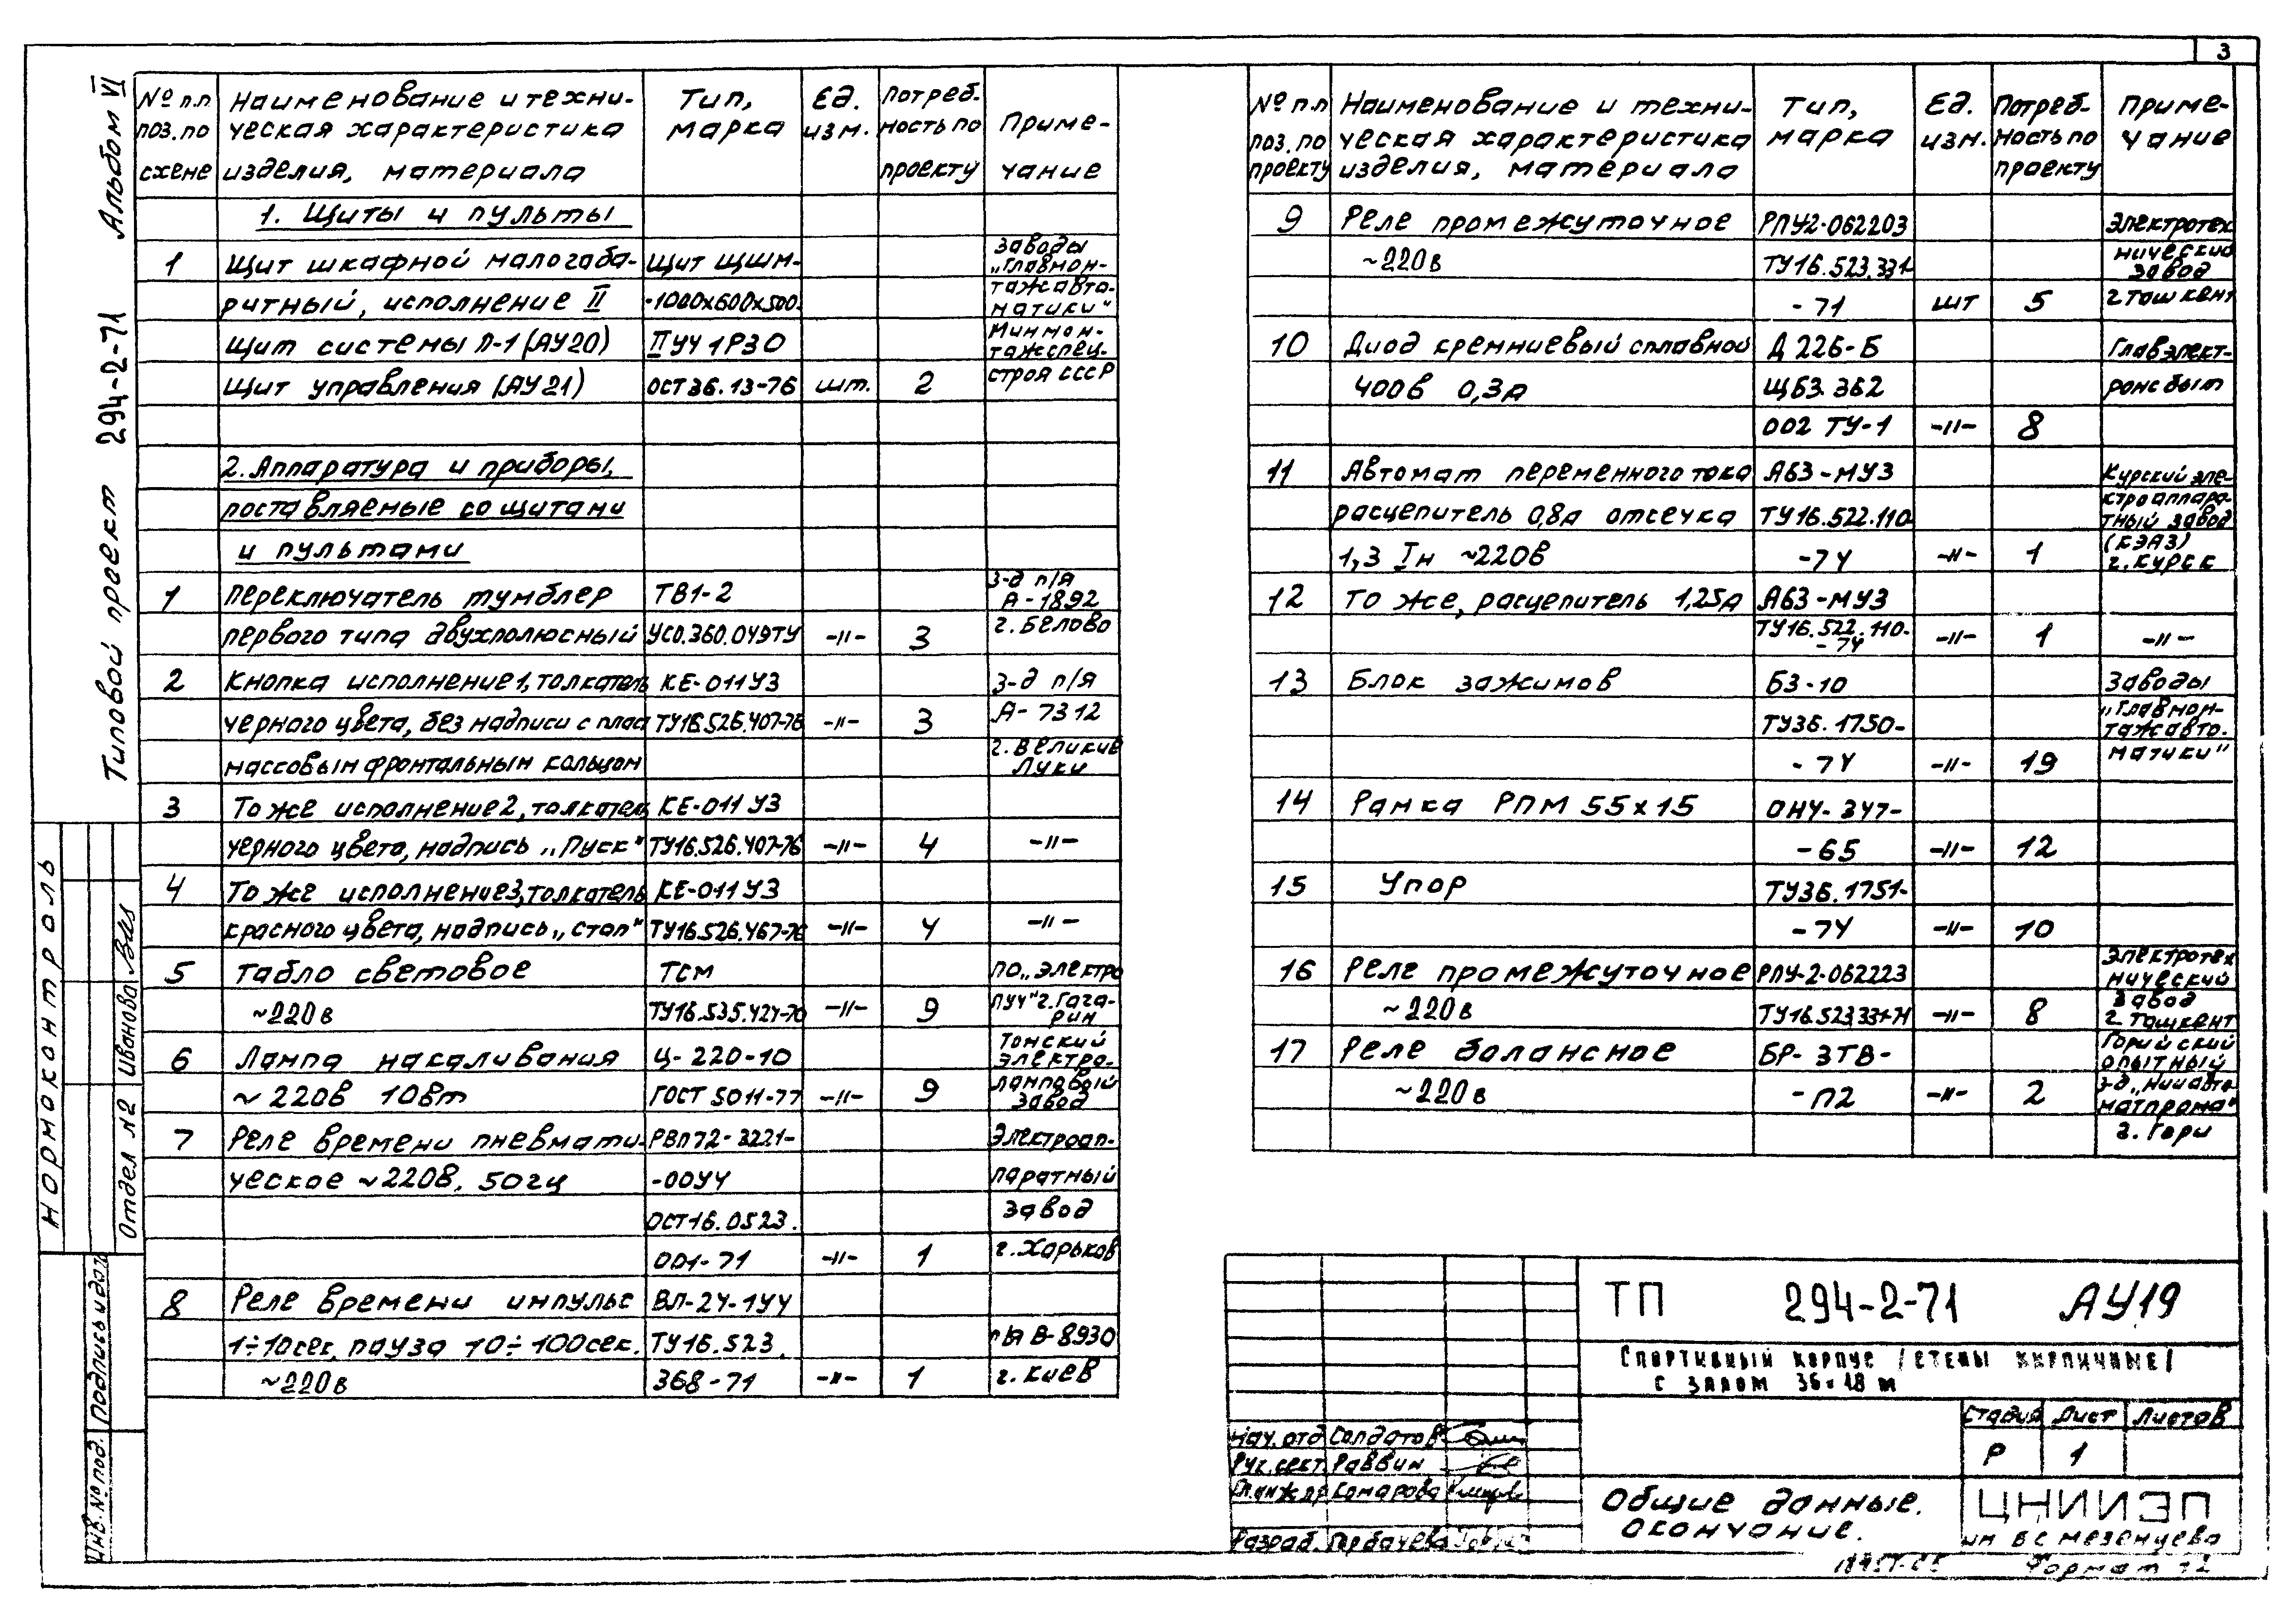 3
Типовой проект 294-2-71 Альбом VI
№ п.п поз. по схеме | Наименование и техническая характеристика изделия, материала | Тип, марка | Ед. изм. | Потребность по проекту | Примечание
1. Щиты и пульты
1 Щит шкафной малогаба- Щит ЩШМ- заводы „Главмон-
ритный, исполнение II -1000х600х500 тажавто-матики"
Щит системы П-1 (АУ20) IIУЧ 1Р30 Минмон-тажспец-
Щит управления (АУ21) ОСТ 36.13-76 шт. 2 строя СССР
2. Аппаратура и приборы,
поставляемые со щитами
и пультами
1 Переключатель тумблер ТВ1-2 З-д п/я А-1892
первого типа двухполюсный УСО.360.049ТУ -〃- 3 г. Белово
2 Кнопка исполнение 1, толкатель КЕ-011У3 З-д п/я
черного цвета, без надписи с плас ТУ16.526.407-76 -〃- 3 А-7312
массовым фронтальным кольцом г. Великие Луки
3 То же исполнение 2, толкатель КЕ-011У3
черного цвета, надпись „Пуск" ТУ16.526.407-76 -〃- 4 -〃-
4 То же исполнение 3, толкатель КЕ-011У3
красного цвета, надпись „стоп" ТУ16.526.467-76 -〃- 4 -〃-
5 Табло световое ТСМ ПО „Электро
~220в ТУ16.535.424-70 -〃- 9 ПУЧ" г. Гагарин
6 Лампа накаливания Ц-220-10 Томский электро-
~220в 10вт ГОСТ 5011-77 -〃- 9 ламповый завод
7 Реле времени пневмати- РВП72-3221- Электроап-
ческое ~220в, 50гц -00У4 паратный
ОСТ16.0523. завод
001-71 -〃- 1 г. Харьков
8 Реле времени импульс ВЛ-24-1У4
1÷10сек, пауза 10÷100сек. ТУ16.523. п/я В-8930
~220в 368-71 -〃- 1 г. Киев
№ п.п поз. по проекту | Наименование и техническая характеристика изделия, материала | Тип, марка | Ед. изм. | Потребность по проекту | Примечание
9 Реле промежуточное РПУ2-062203 Электротех
~220в ТУ16.523.331- нический завод
-71 шт 5 г Ташкент
10 Диод кремниевый сплавной Д 226-Б Главэлект-
400в 0,3а ЩБ3.362 ронсбыт
002 ТУ-1 -〃- 8
11 Автомат переменного тока А63-МУ3 Курский эле-
расцепитель 0,8а отсечка ТУ16.522.110- ктроаппара-тный завод
1,3 Iн ~220в -74 -〃- 1 (КЭАЗ) г. Курск
12 То же, расцепитель 1,25а А63-МУ3
ТУ16.522.110-74 -〃- 1 -〃-
13 Блок зажимов БЗ-10 Заводы
ТУ36.1750- „Главмон-тажавто-
-74 -〃- 19 матики"
14 Рамка РПМ 55х15 ОНУ-347-
-65 -〃- 12
15 Упор ТУ36.1751-
-74 -〃- 10
16 Реле промежуточное РПУ-2-062223 Электротех нический
~220в ТУ16.523.331-71 -〃- 8 завод г. Ташкент
17 Реле балансное БР-3ТВ- Горийский опытный
~220в -П2 -〃- 2 з-д „Ниавто-матпрома"
г. Гори
Нормоконтроль
Отдел №2 Иванова
Инв. № под. Подпись и дата
ТП 294-2-71 АУ19
Спортивный корпус /стены кирпичные/
с залом 36х18 м
Стадия Лист Листов
Р 1
Нач. отд Солдатов
Рук. сект. Раввин
Гл. инж. пр Комарова
Разраб. Горбачева
Общие данные.
Окончание.
ЦНИИЭП
им Б С Мезенцева
Формат 12